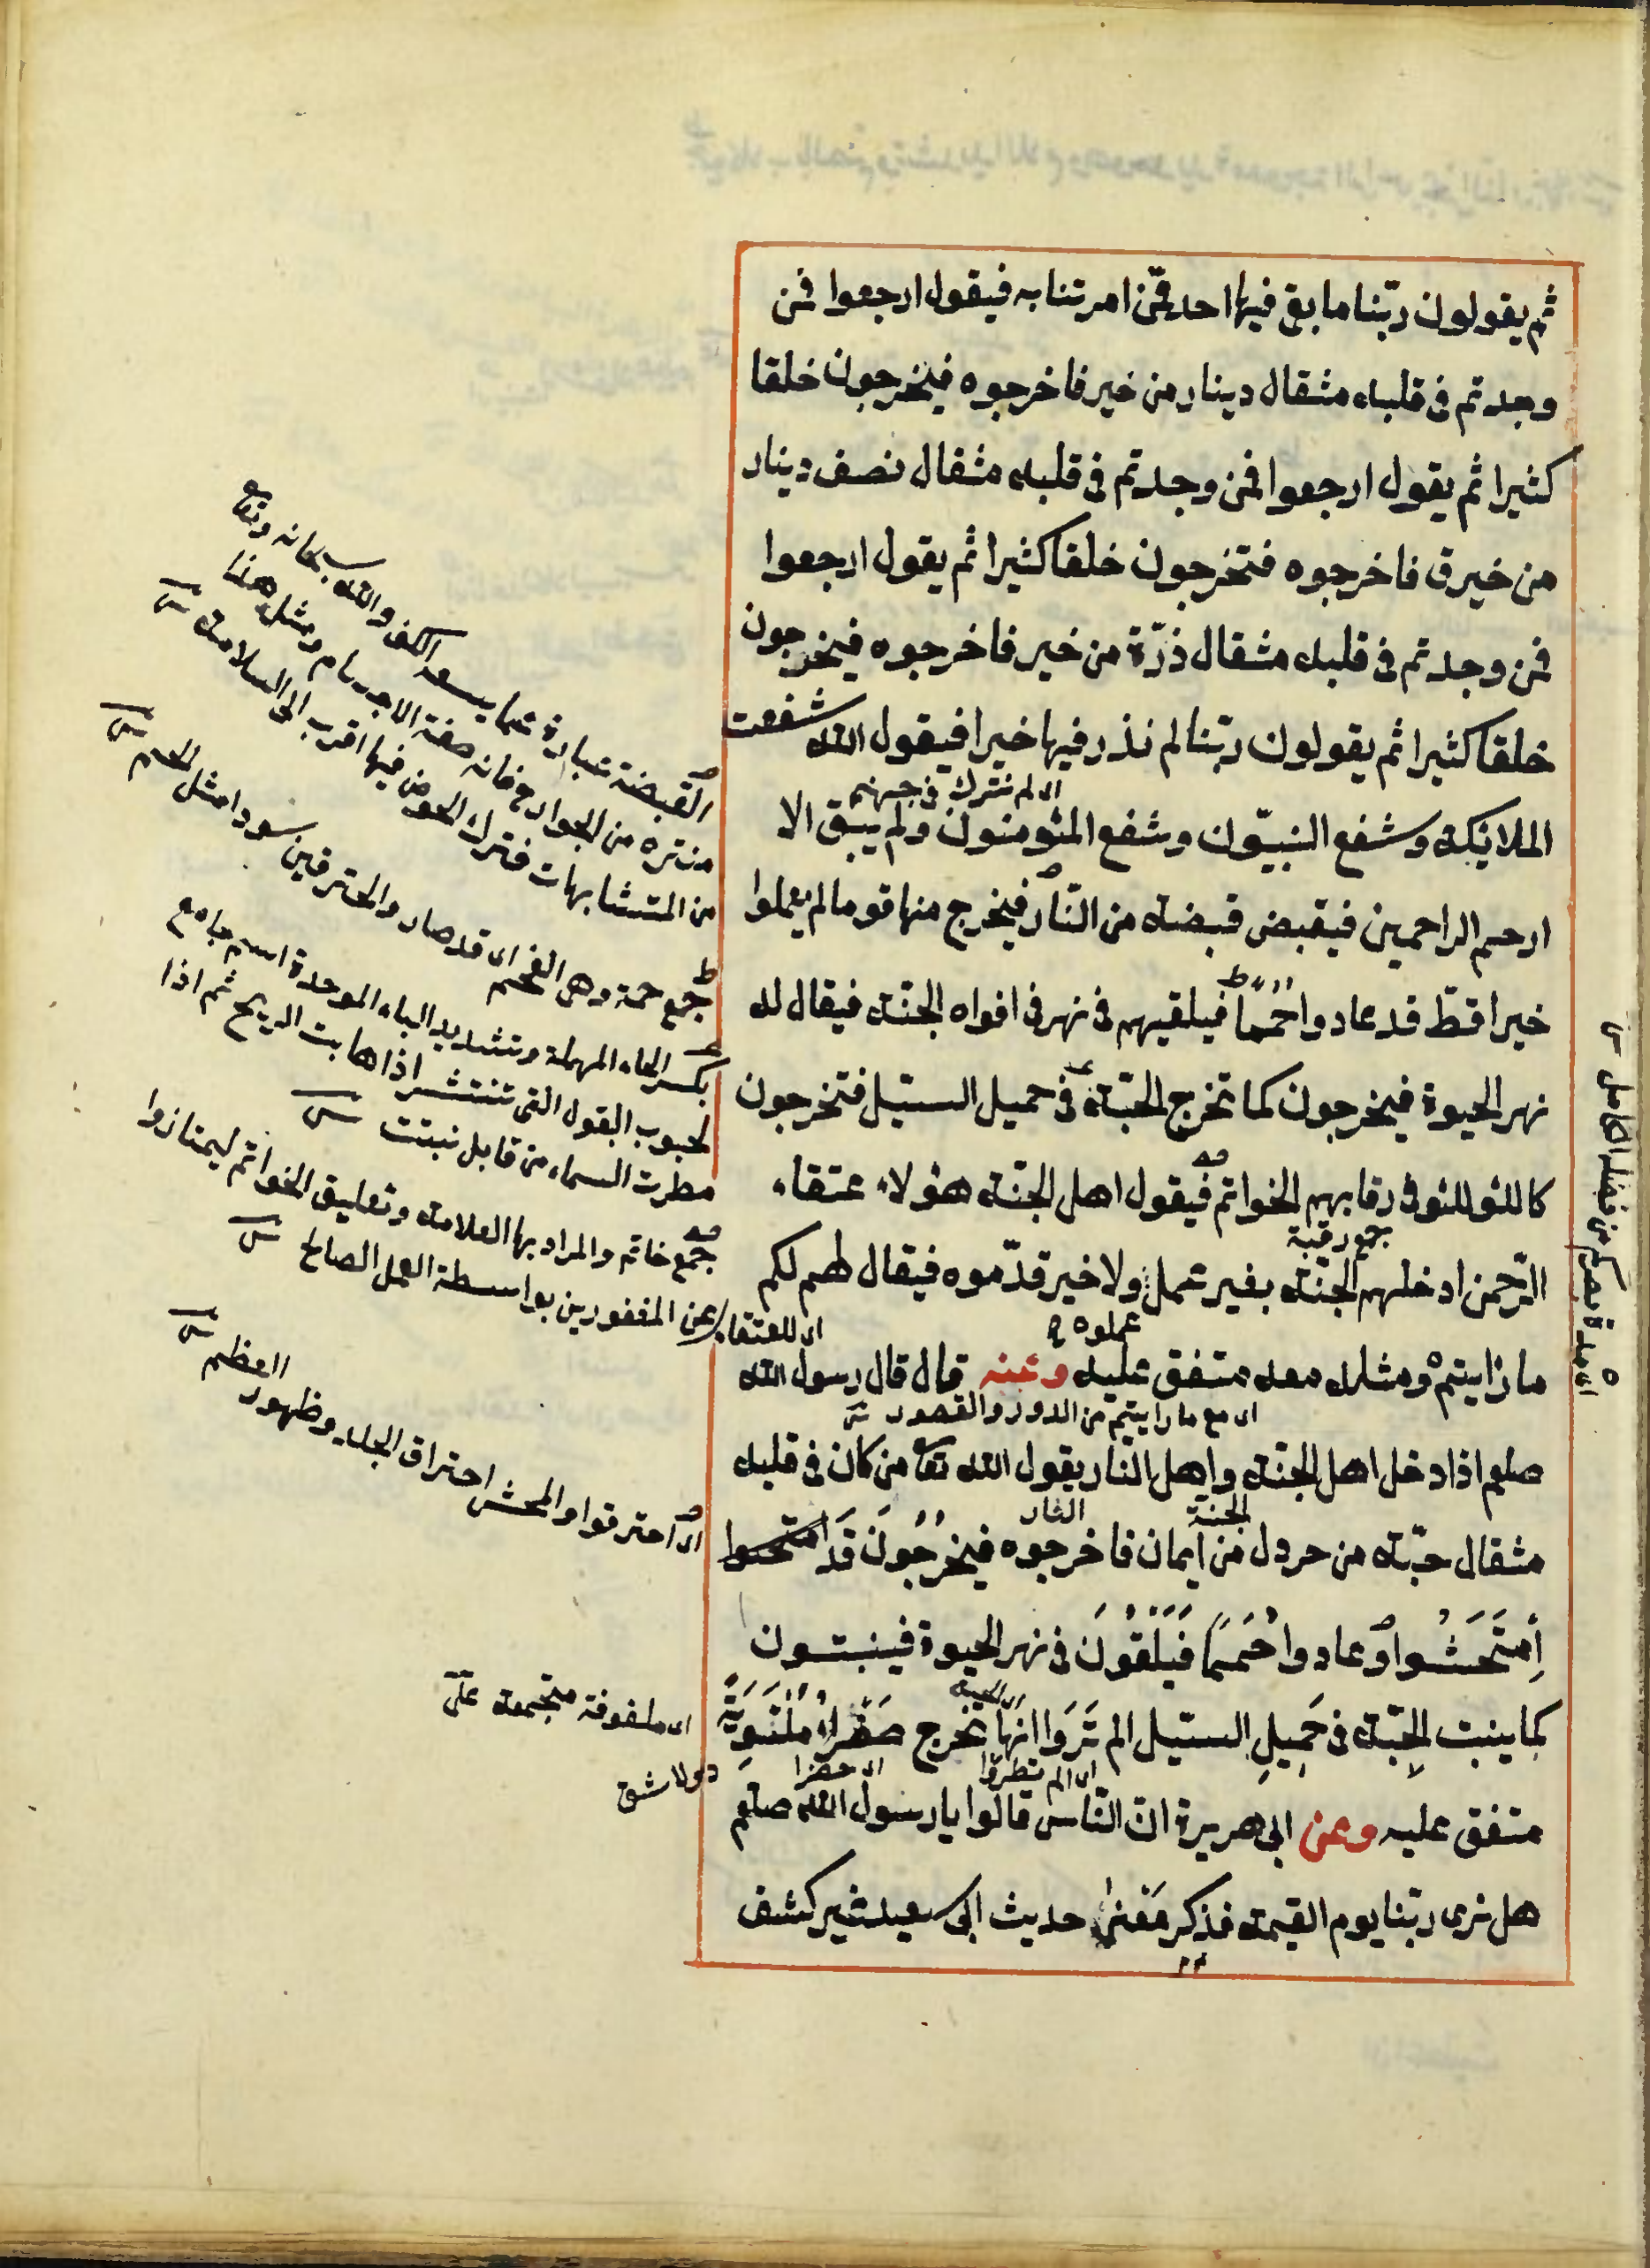 ثم يقولون ربّنا ما بقى فيها احد ممّن امرتنا به فيقول ارجعوا فمن
وجدتم فى قلبه مثقال دينار من خير فاخرجوه فيخرجون خلقا
كثيرا ثم يقول ارجعوا فمن وجدتم فى قلبه مثقال نصف دينار
من خير فاخرجوه فتخرجون خلقا كثيرا ثم يقول ارجعوا
فمن وجدتم فى قلبه مثقال ذرّة من خير فاخرجوه فيخرجون
خلقا كثيرا ثم يقولون ربّنا لم نذر فيها خيرا فيقول الله شفعت
اى لم نترك فى جهنم
الملائكة وشفع النبيّون وشفع المئومنون ولم يبق الا
ارحم الراحمين فيقبض قبضة من النّار فيخرج منها قوما لم يعملوا
خيرا قطّ قد عادوا حُمَمًا فيلقيهم فى نهر فى افواه الجنّة فيقال له
نهر الحيوة فيخرجون كما تخرج الحبّة فى حميل السيل فتخرجون
كاللئولئو فى رقابهم الخواتم فيقول اهل الجنّة هئولاء عتقاء
جمع رقبة
الرّحمن ادخلهم الجنّة بغير عمل ولا خير قدّموه فيقال لهم لكم
عملوه
اى للعتقاء
ما رايتم ومثله معه متفق عليه وعنه قال قال رسول الله
اى مع ما رايتم من الدور والقصور
صلعم اذا دخل اهل الجنّة واهل النار يقول الله تعا من كان فى قلبه
الجنة
النار
مثقال حبّة من خردل من ايمان فاخرجوه فيخرُجُونَ قَد امتحشوا
اِمتَحَشُوا وعادوا حُمَمًا فَيُلْقَوْنَ فى نهر الحيوة فينبتون
كما ينبت الحِبّة فى حَمِيلِ السيل الم تَرَوا انّها تخرج صَفْراءَ مُلْتَوِيَةً
اى الحبة
اى الم تنظروا
متفق عليه وعن ابى هريرة ان النّاس قالوا يا رسول الله صلعم
هل نرى ربّنا يوم القيمة فذكر مَعْنى حديث ابى سعيد غير كشف
القبضة عبارة عما يسعه الكف والله سبحانه وتعا
منزه من الجوارح فانه صفة الاجسام ومثل هذا
من المتشابهات فترك الخوض فيها اقرب الى السلامة
جمع حممة وهى الفحم اى قد صاروا محترقين سودا مثل الحمم
بكسر الحاء المهملة وتشديد الباء الموحدة اسم جامع
لحبوب البقول التى تنتشر اذا هابت الريح ثم اذا
مطرت السماء من قابل نبتت
جمع خاتم والمراد بها العلامة وتعليق الخواتم ليمتازوا
عن المغفورين بواسطة العمل الصالح
اى احترقوا والمحش احتراق الجلد وظهور
العظم
اى ملفوفة مجتمعة